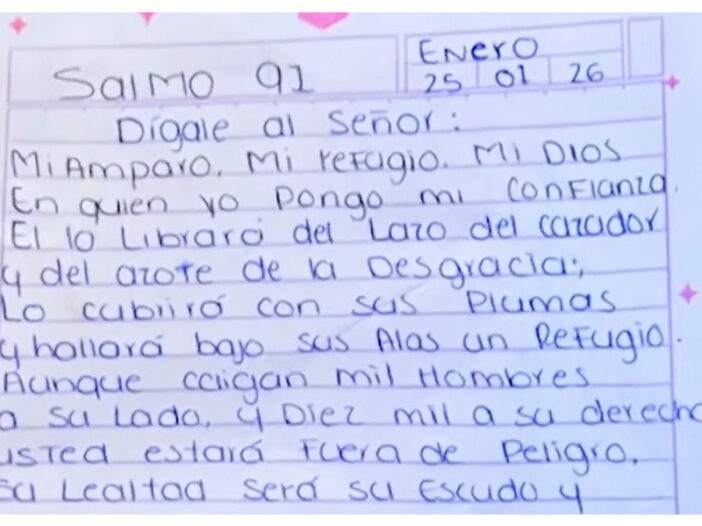 Salmo 91
Enero
25 01 26
Dígale al señor:
Mi Amparo. Mi refugio. Mi Dios
En quien yo pongo mi confianza.
El lo Librará del Lazo del cazador
y del azote de la Desgracia;
Lo cubriró con sus Plumas
y hallará bajo sus Alas un Refugio.
Aunque caigan mil Hombres
a su Lado, y Diez mil a su derecha
usted estará Fuera de Peligro.
su Lealtad será su Escudo y